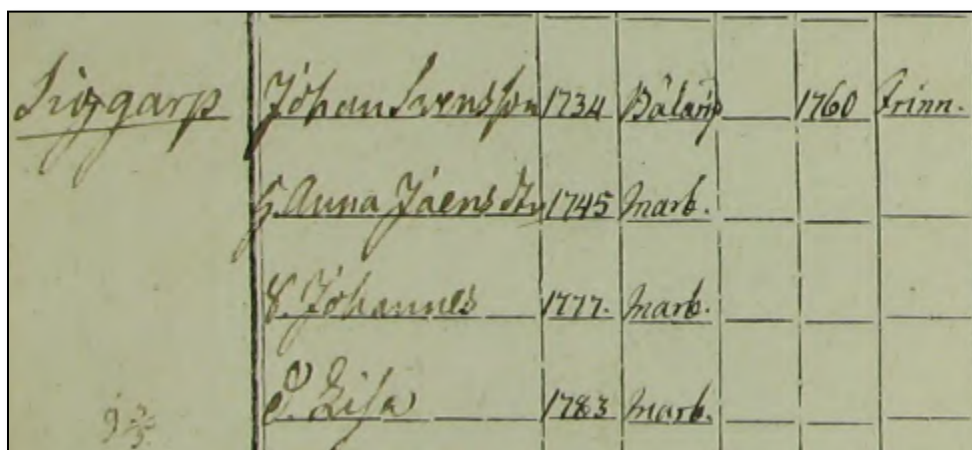 Siggarp Johan Svensson 1734 Bälarp 1760 Trinn.
H. Anna Jaensdtr 1745 Marb.
S. Johannes 1777. Marb.
D. Lisa 1783 Marb.